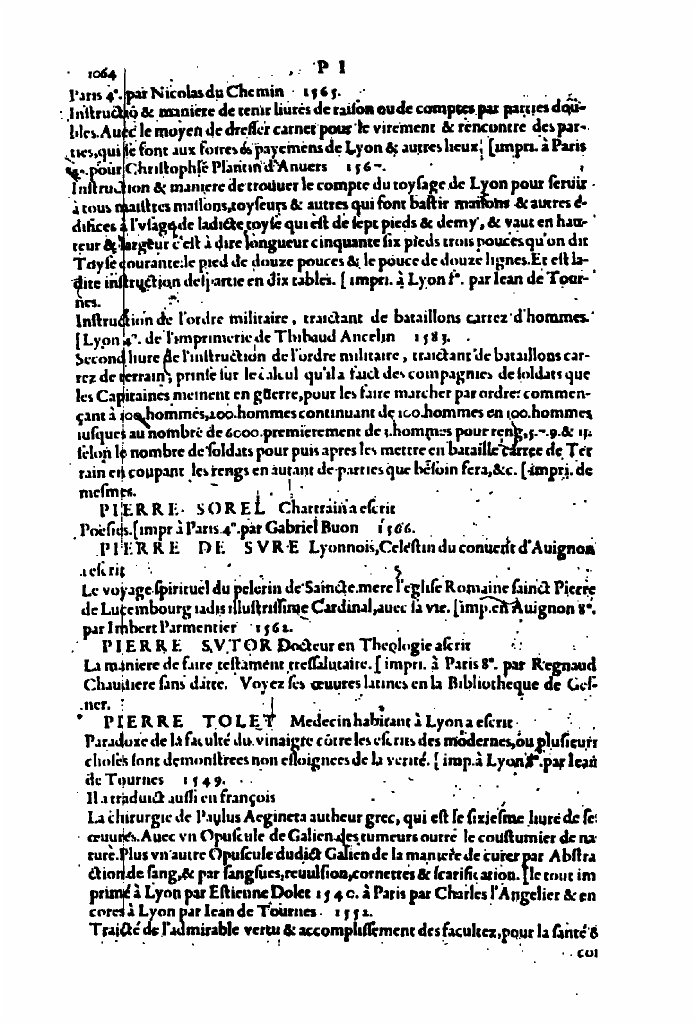 1064 P I
Paris 4°. par Nicolas du Chemin 1565.
Instructiō & maniere de tenir liures de raison ou de comptes par parties dou-
bles. Auec le moyen de dresser carnet pour le virement & rencontre des par-
ties, qui se font aux foires & payemens de Lyon & autres lieux, [impri. à Paris
4°. pour Christophle Plantin d'Anuers 1567.
Instruction & maniere de trouuer le compte du toysage de Lyon pour seruir
à tous maistres massons, toyseurs & autres qui font bastir maisons & autres é-
difices à l'vsage de ladicte toyse qui est de sept pieds & demy, & vaut en hau-
teur & largeur c'est à dire longueur cinquante six pieds trois pouces qu'on dit
Toyse courante: le pied de douze pouces & le pouce de douze lignes. Et est la-
dite instruction despartie en dix tables. [impri. à Lyon 8°. par Iean de Tour-
nes.
Instruction de l'ordre militaire, traictant de bataillons carrez d'hommes.
[Lyon 4°. de l'imprimerie de Thibaud Ancelin 1583.
Second liure de l'instruction de l'ordre militaire, traictant de bataillons car-
rez de terrain, prinse sur le calcul qu'il a faict des compagnies de soldats que
les Capitaines meinent en guerre, pour les faire marcher par ordre: commen-
çant à 100. hommes, 200. hommes continuant de 100. hommes en 100. hommes
iusques au nombre de 6000. premierement de 3. hommes pour reng, 5. 7. 9. & 11.
selon le nombre de soldats pour puis apres les mettre en bataille carree de Ter
rain en coupant les rengs en autant de parties que besoin sera, &c. [impri. de
mesmes.
PIERRE SOREL Chartrain a escrit
Poësies. [impr à Paris 4°. par Gabriel Buon 1566.
PIERRE DE SVRE Lyonnois, Celestin du conuent d'Auignon
a escrit
Le voyage spirituel du pelerin de Saincte mere l'eglise Romaine sainct Pierre
de Lucembourg iadis illustrissime Cardinal, auec sa vie. [imp. en Auignon 8°.
par Imbert Parmentier 1562.
PIERRE SVTOR Docteur en Theologie a escrit
La maniere de faire testament tressalutaire. [impri. à Paris 8°. par Regnaud
Chaudiere sans datte. Voyez ses œuures latines en la Bibliotheque de Ges-
ner.
PIERRE TOLET Medecin habitant à Lyon a escrit
Paradoxe de la faculté du vinaigre cōtre les escrits des modernes, ou plusieurs
choses sont demonstrees non esloignees de la verité. [imp. à Lyon 8°. par Iean
de Tournes 1549.
Il a traduict aussi en françois
La chirurgie de Paulus Aegineta autheur grec, qui est le sixiesme liure de ses
œuures. Auec vn Opuscule de Galien des tumeurs outre le coustumier de na
ture. Plus vn autre Opuscule dudict Galien de la maniere de curer par Abstra
ction de sang, & par sangsues, reuulsion, cornettes & scarification. [le tout im
primé à Lyon par Estienne Dolet 1540. à Paris par Charles l'Angelier & en
cores à Lyon par Iean de Tournes 1552.
Traicté de l'admirable vertu & accomplissement des facultez, pour la santé &